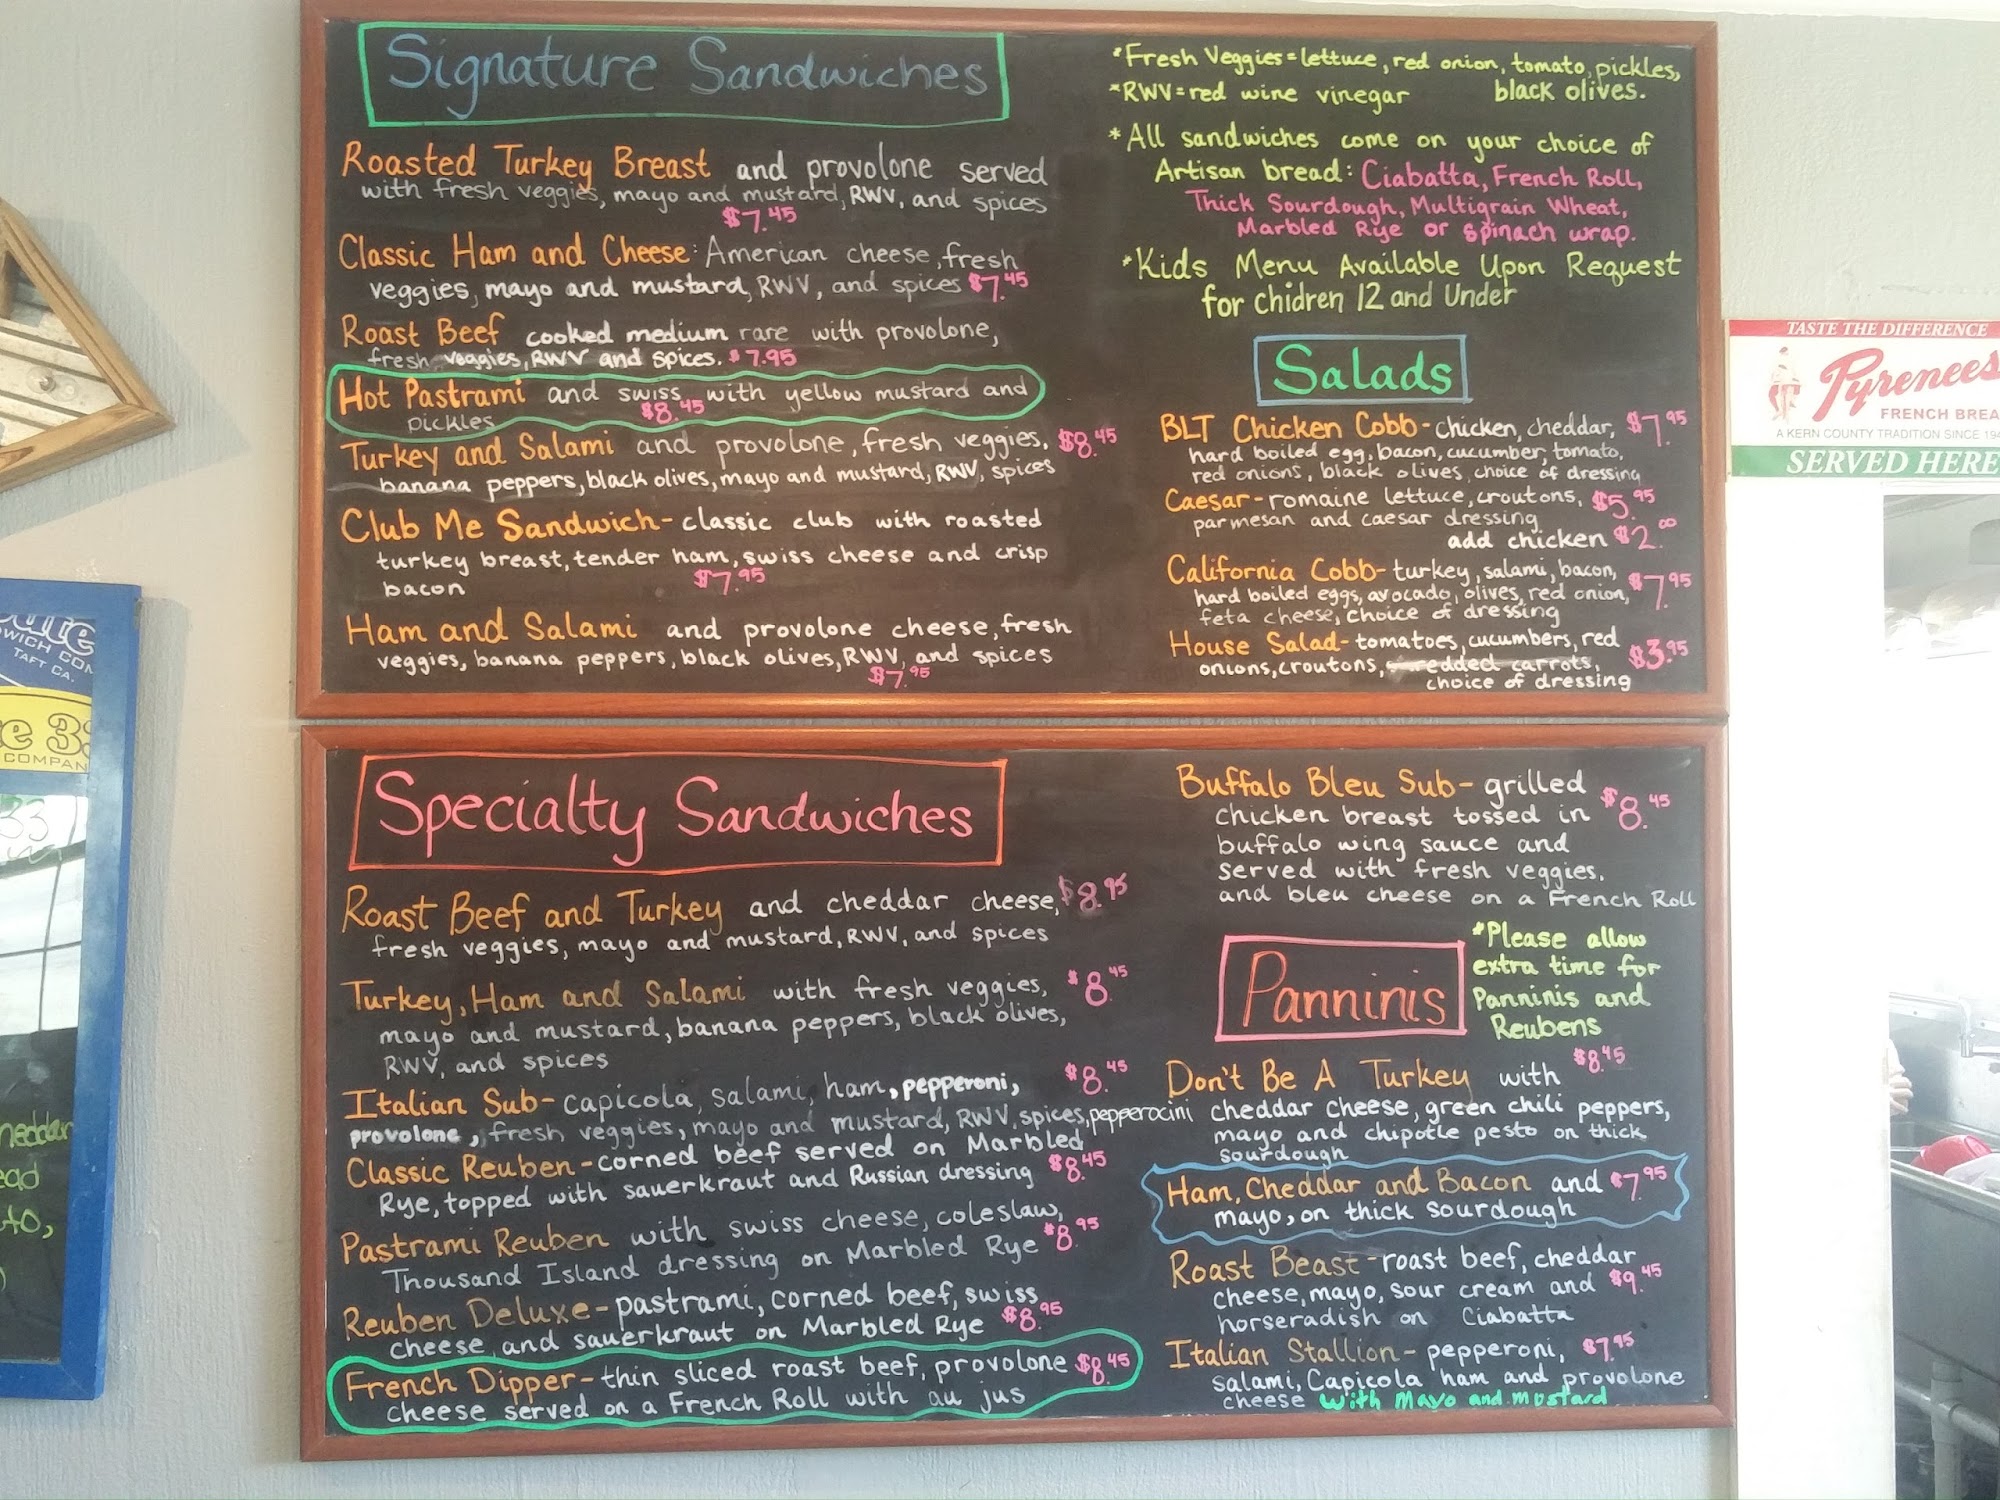 Signature Sandwiches
Roasted Turkey Breast and provolone served
with fresh veggies, mayo and mustard, RWV, and spices
$7.45
Classic Ham and Cheese: American cheese, fresh
veggies, mayo and mustard, RWV, and spices $7.45
Roast Beef cooked medium rare with provolone,
fresh veggies, RWV and spices. $7.95
Hot Pastrami and swiss with yellow mustard and
pickles $8.45
Turkey and Salami and provolone, fresh veggies, $8.45
banana peppers, black olives, mayo and mustard, RWV, spices
Club Me Sandwich- classic club with roasted
turkey breast, tender ham, swiss cheese and crisp
bacon $7.95
Ham and Salami and provolone cheese, fresh
veggies, banana peppers, black olives, RWV, and spices
$7.95
*Fresh Veggies = lettuce, red onion, tomato, pickles,
black olives.
*RWV = red wine vinegar
*All sandwiches come on your choice of
Artisan bread: Ciabatta, French Roll,
Thick Sourdough, Multigrain Wheat,
Marbled Rye or spinach wrap.
*Kids Menu Available Upon Request
for Chidren 12 and Under
Salads
BLT Chicken Cobb- chicken, cheddar, $7.95
hard boiled egg, bacon, cucumber, tomato,
red onions, black olives, choice of dressing
Caesar- romaine lettuce, croutons, $5.95
parmesan and caesar dressing
add chicken $2.00
California Cobb- turkey, salami, bacon, $7.95
hard boiled eggs, avocado, olives, red onion,
feta cheese, choice of dressing
House Salad- tomatoes, cucumbers, red $3.95
onions, croutons, redded carrots,
choice of dressing
Specialty Sandwiches
Roast Beef and Turkey and cheddar cheese, $8.95
fresh veggies, mayo and mustard, RWV, and spices
Turkey, Ham and Salami with fresh veggies, $8.45
mayo and mustard, banana peppers, black olives,
RWV, and spices
Italian Sub- capicola, salami, ham, pepperoni, $8.45
provolone, fresh veggies, mayo and mustard, RWV, spices, pepperocini
Classic Reuben- corned beef served on Marbled
Rye, topped with sauerkraut and Russian dressing $8.45
Pastrami Reuben with swiss cheese, coleslaw,
Thousand Island dressing on Marbled Rye $8.95
Reuben Deluxe- pastrami, corned beef, swiss
cheese, and sauerkraut on Marbled Rye $8.95
French Dipper- thin sliced roast beef, provolone $8.45
cheese served on a French Roll with au jus
Buffalo Bleu Sub- grilled $8.45
chicken breast tossed in
buffalo wing sauce and
served with fresh veggies,
and bleu cheese on a French Roll
Panninis
*Please allow
extra time for
Panninis and
Reubens
Don't Be A Turkey with $8.45
cheddar cheese, green chili peppers,
mayo and chipotle pesto on thick
sourdough
Ham, Cheddar and Bacon and $7.95
mayo, on thick sourdough
Roast Beast- roast beef, cheddar
cheese, mayo, sour cream and $9.45
horseradish on Ciabatta
Italian Stallion- pepperoni, $7.95
salami, Capicola ham and provolone
cheese with Mayo and mustard
TASTE THE DIFFERENCE
Pyrenees
FRENCH BREA
A KERN COUNTY TRADITION SINCE 194
SERVED HERE
WICH COM
TAFT CA.
e 33
COMPAN
33
heddar
ead